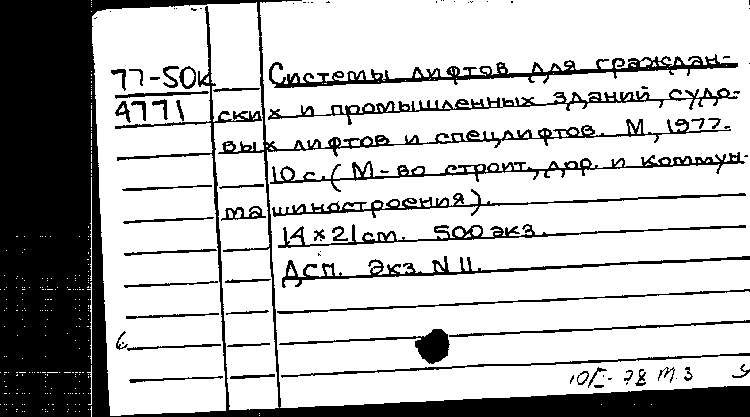 77-50к Системы лифтов для граждан-
4771 ских и промышленных зданий, судо-
вых лифтов и спецлифтов. М., 1977.
10 с. (М-во строит., дор. и коммун.
машиностроения).
14×21 см. 500 экз.
Дсп. Экз. N 11.
10/I-78 м. 3